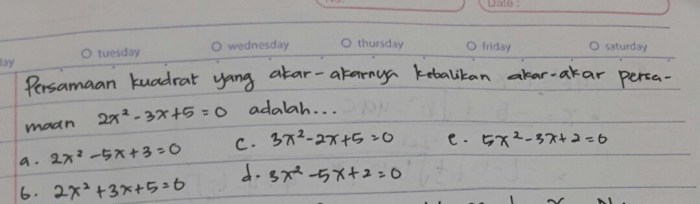 Date:
day O tuesday O wednesday O thursday O friday O saturday
Persamaan kuadrat yang akar-akarnya kebalikan akar-akar persa-
maan 2x² - 3x + 5 = 0 adalah...
a. 2x² - 5x + 3 = 0 c. 3x² - 2x + 5 = 0 e. 5x² - 3x + 2 = 0
b. 2x² + 3x + 5 = 0 d. 3x² - 5x + 2 = 0